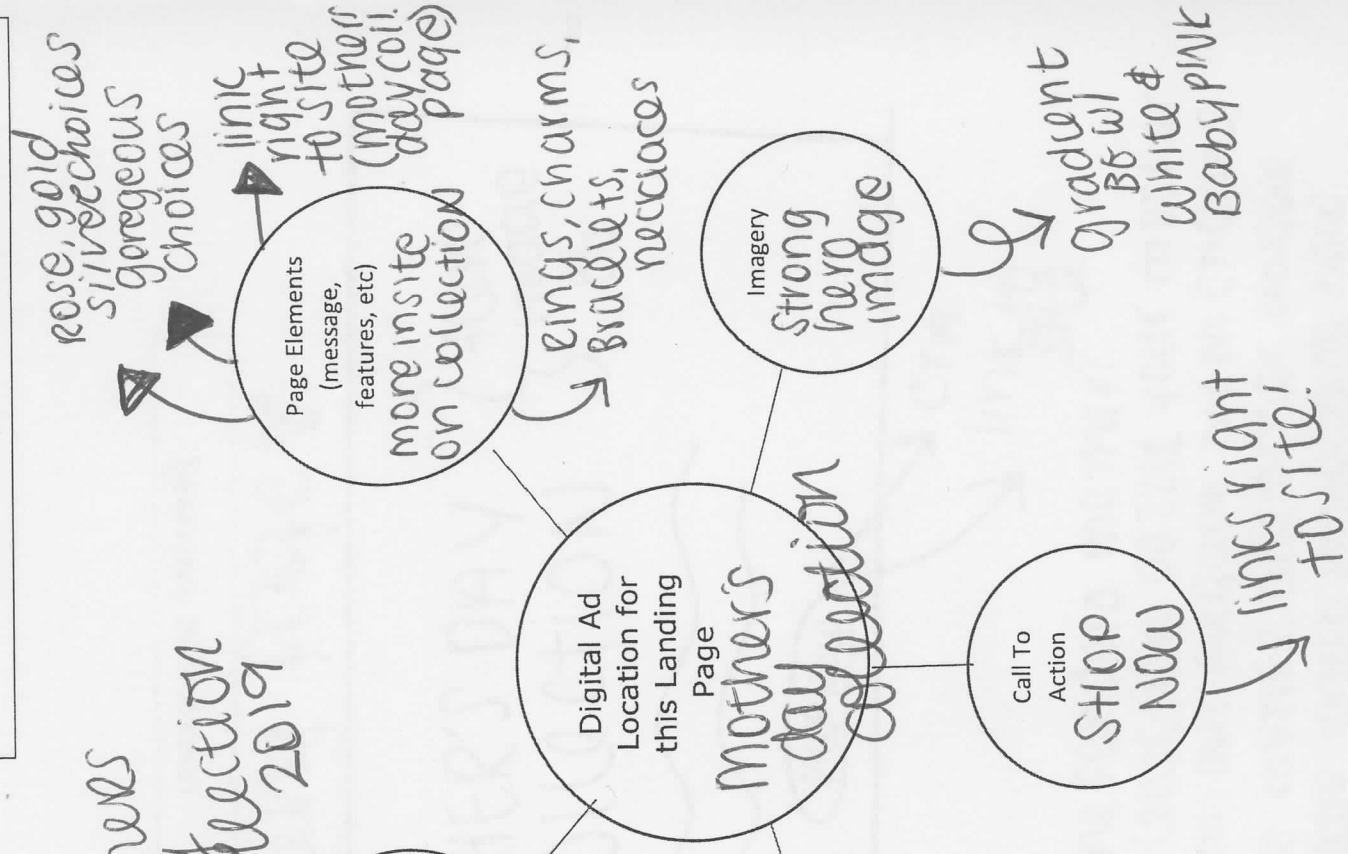 rose, gold
silver choices
gorgeous
choices
link
right
to site
(mothers
day coll.
page)
Page Elements
(message,
features, etc)
more insite
on collection
rings, charms,
Bracelets,
necklaces
Imagery
Strong
hero
image
gradient
BG w/
white &
Baby pink
Digital Ad
Location for
this Landing
Page
Mother's
day
collection
Call To
Action
SHOP
NOW
links right
to site!
2019